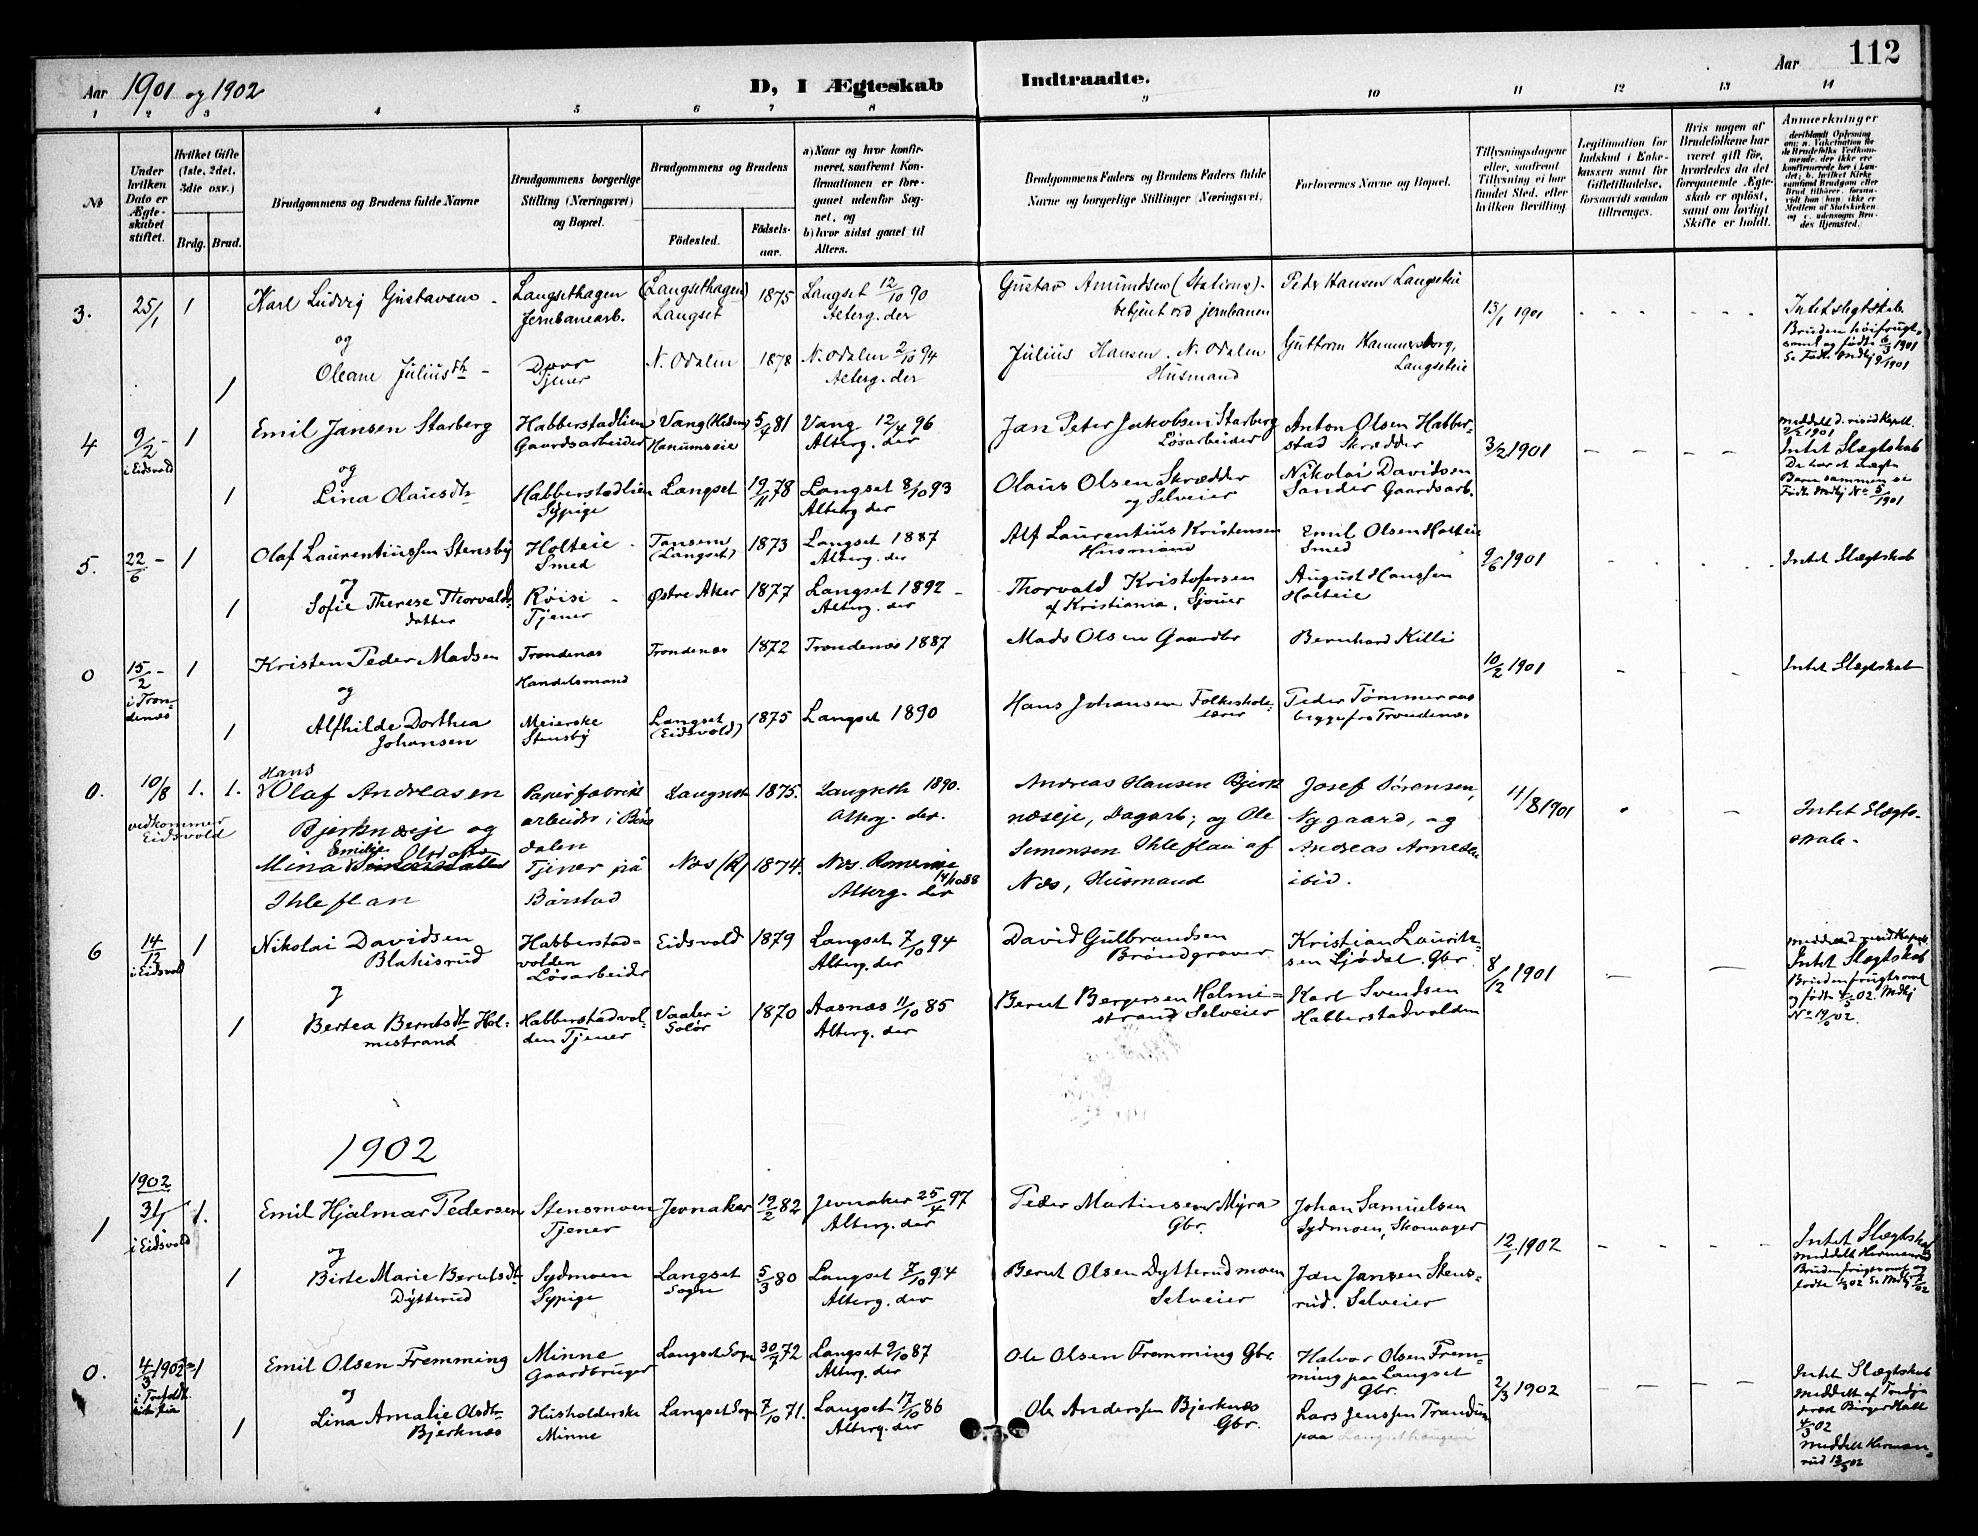 112
Aar 1901 og 1902
D, I Ægteskab Indtraadte.
Aar
1 2 3 4 5 6 7 8 9 10 11 12 13 14
№
Under hvilken Dato er Ægteskabet stiftet.
Hvilket Gifte (1ste, 2det, 3die osv.)
Brdg. Brud.
Brudgommens og Brudens fulde Navne
Brudgommens borgerlige Stilling (Næringsvei) og Bopæl.
Brudgommens og Brudens
Födested.
Födsels-aar.
a) Naar og hvor konfirmeret, saafremt Konfirmationen er foregaaet udenfor Sognet, og
b) hvor sidst gaaet til Alters.
Brudgommens Faders og Brudens Faders fulde Navne og borgerlige Stillinger (Næringsvei)
Forlovernes Navne og Bopæl.
Tillysningsdagene eller, saafremt Tillysning ei har fundet Sted, efter hvilken Bevilling
Legitimation for Indskud i Enkekassen samt for Giftetilladelse, forsaavidt saadan tiltrænges.
Hvis nogen af Brudefolkene har været gift för, hvorledes da det foregaaende Ægteskab er oplöst, samt om lovligt Skifte er holdt.
Anmærkninger
3. 25/1 1 Karl Ludvig Gustavsen Langsethagen Jernbanearb. (Langsethagen) Langset 1875 Langset 12/10 90 Alterg. der Gustav Amundsen (Stations)-betjent ved jernbanen Peder Hansen Langseteie 13/1 1901 Intet slegtskab.
og
1 Oleane Juliusdtr Tjener N. Odalen 1878 N. Odalen 2/10 94 Alterg. der Julius Hansen. N. Odalen Husmand Guttorm Hammersborg, Langseteie
4 9/2 i Eidsvold 1 Emil Jansen Starberg Habberstadlien Gaardsarbeider Vang (Hedem) 5/4 81 Vang 12/4 96 Alterg. der Jan Peter Jakobsen Starberg Løsarbeider Anton Olsen Habberstad Skrædder 3/2 1901 Intet Slægtskab
og
1 Lina Olausdtr Habberstadlien Sypige Langset 19/11 78 Langset 8/10 93 Alterg der Olaus Olsen Skrædder og Selveier Nikolai Davidsen Sander Gaardsarb.
5. 22/6 1 Olaf Laurentiussen Stensby Holteie Smed Tansem (Langset) 1873 Langset 1887 Alterg. der Alf Laurentius Kristensen Husmand Emil Olsen Holteie Smed 9/6 1901 Intet Slægtskab
og
1 Sofie Therese Thorvaldsdatter Røisi Tjener Østre Aker 1877 Langset 1892 Alterg. der Thorvald Kristofersen af Kristiania, Sjouer August Hanssen Holteie
0 15/2 i Trondenæs 1 Kristen Peder Madsen Trondenæs Handelsmand Trondenæs 1872 Trondenæs 1887 Mads Olsen Gaardbr Bernhard Killi 10/2 1901 Intet Slægtskab
og
1 Alfhilde Dorthea Johansen Meierske Stensby Langset (Eidsvold) 1875 Langset 1890 Hans Johansen Folkeskolelærer Peder Tømmeraas begge fra Trondenæs
0. 10/8 vedkommer Eidsvold 1. 1. Hans Olaf Andreasen Bjerknæseje og Papirfabrikarbeider i Bøndalen Langseth 1875. Langseth 1890. Alterg. der. Andreas Hansen Bjerknæseje, Dagarb; og Ole Simensen Ihleflan af Næs, Husmand Josef Sørensen, Nygaard, og Andreas Arnesen ibid. 11/8 1901 Intet Slægtskab.
Mina Emilie Olsdatter Ihleflan Tjener på Bårstad Næs (R) 1874. Næs. Romerike 14/10 88 Alterg. der
6 14/12 i Eidsvold 1 Nikolai Davidsen Blakisrud Habberstadvolden Løsarbeider Eidsvold 1879 Langset 7/10 94 Alterg. der David Gulbrandsen Brøndgraver Kristian Lauritsen Sjødal. Gbr. 8/12 1901 Intet Slægtskab
og
1 Bertea Berntsdtr Holmestrand Habberstadvolden Tjener Vaaler i Solør 1870 Aasnæs 11/10 85 Alterg. der Bernt Bergersen Holmestrand Selveier Karl Svendsen Habberstadvolden
1902
1902
1 31/1 i Eidsvold 1. Emil Hjalmar Pedersen Stensmoen Tjener Jevnaker 19/2 82 Jevnaker 25/4 97 Alterg. der Peder Martinsen Myra Gbr. Johan Samuelsen Sydmoen, Skomager 12/1 1902 Intet Slægtskab
og
1 Birte Marie Berntsdtr Dytterud Sydmoen Sypige Langset Sogn 5/3 80 Langset 7/10 94 Alterg. der Bernt Olsen Dytterudmoen Selveier Jan Jansen Stensrud. Selveier
0. 4/3 1902 1 Emil Olsen Fremming Minne Gaardbruger Langset Sogn 30/7 72 Langset 9/10 87 Alterg. der Ole Olsen Fremming Gbr. Halvor Olsen Fremming paa Langset Gbr. 2/3 1902 Intet Slægtskab
og
1 Lina Amalie Olsdtr Bjerknæs Husholderske Minne Langset Sogn 7/10 71. Langset 17/10 86 Alterg. der Ole Anderssen Bjerknæs Gbr. Lars Jenssen Trandum paa